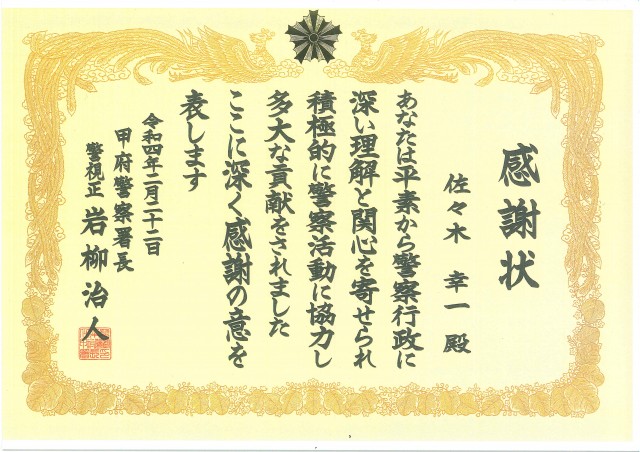 感謝状
佐々木 幸一 殿
あなたは平素から警察行政に
深い理解と関心を寄せられ
積極的に警察活動に協力し
多大な貢献をされました
ここに深く感謝の意を
表します
令和四年二月二十二日
甲府警察署長
警視正 岩柳治人